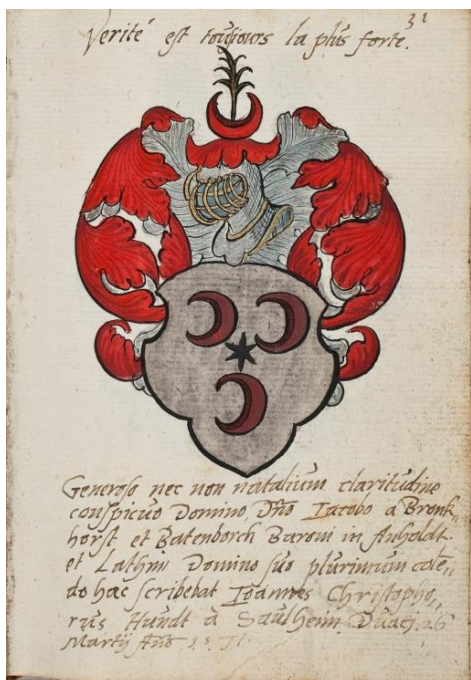 31
Verité est toujours la plus forte.
Generoso nec non natalium claritudine
conspicuo Domino, Dño Iacobo a Bronk„
horst et Batenborch Baroni in Anholdt
et Lathm Domino suo plurimum cole„
do hæc scribebat Ioannes Christopho„
rus Hundt à Saulheim Duaci 26
Martij Año 1571.